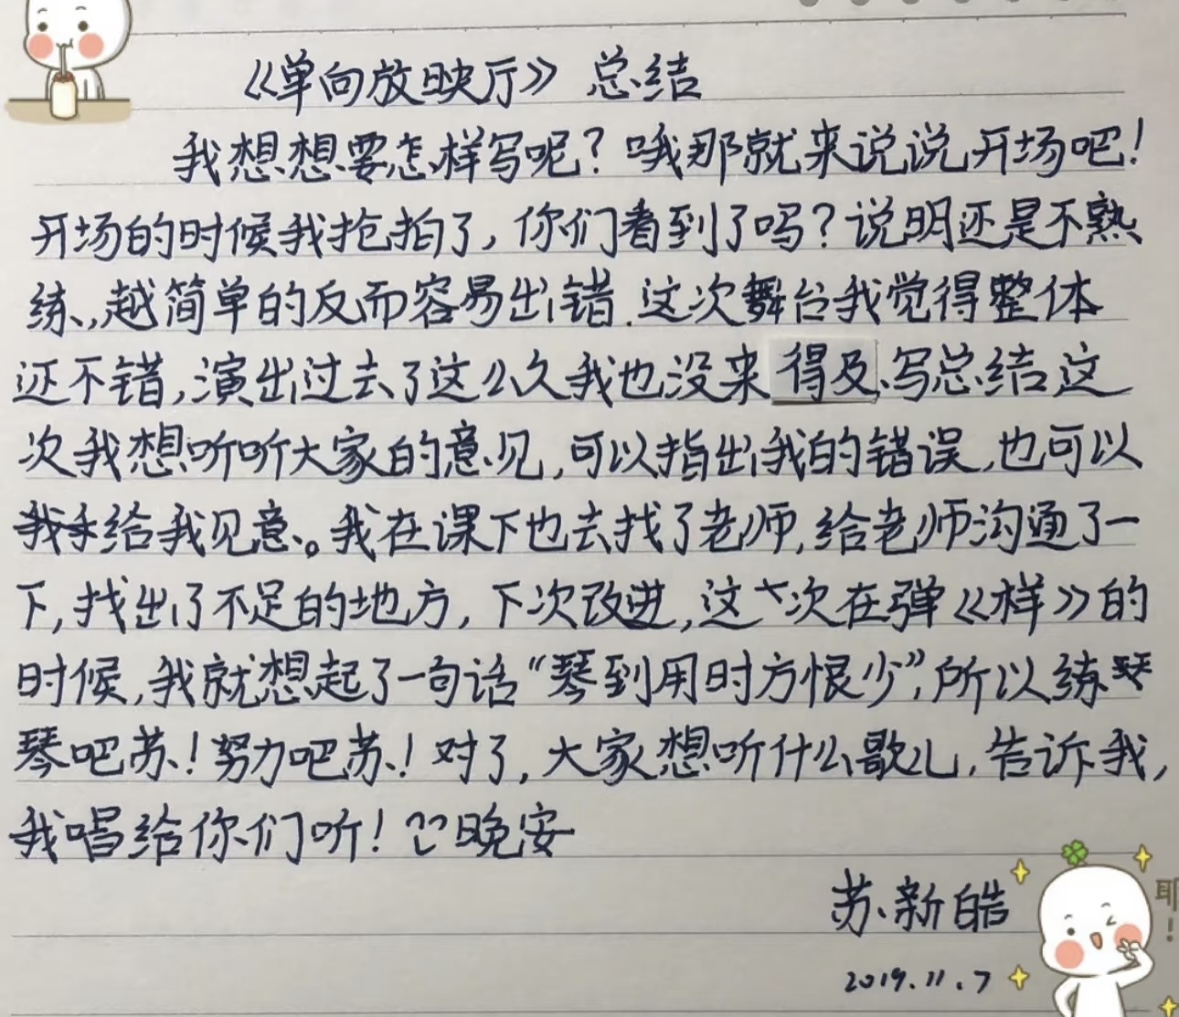 《单向放映厅》总结
我想想要怎样写呢？哦那就来说说开场吧！
开场的时候我抢拍了，你们看到了吗？说明还是不熟
练、，越简单的反而容易出错.这次舞台我觉得整体
还不错，演出过去了这么久我也没来得及、写总结这
次我想听听大家的意见，可以指出我的错误，也可以
给我见意。我在课下也去找了老师，给老师沟通了一
下，找出了不足的地方，下次改进，这个次在弹《样》的
时候，我就想起了一句话“琴到用时方恨少”，所以练琴
琴吧苏！努力吧苏！对了，大家想听什么歌儿，告诉我，
我唱给你们听！晚安
苏新皓
2019.11.7
耶！